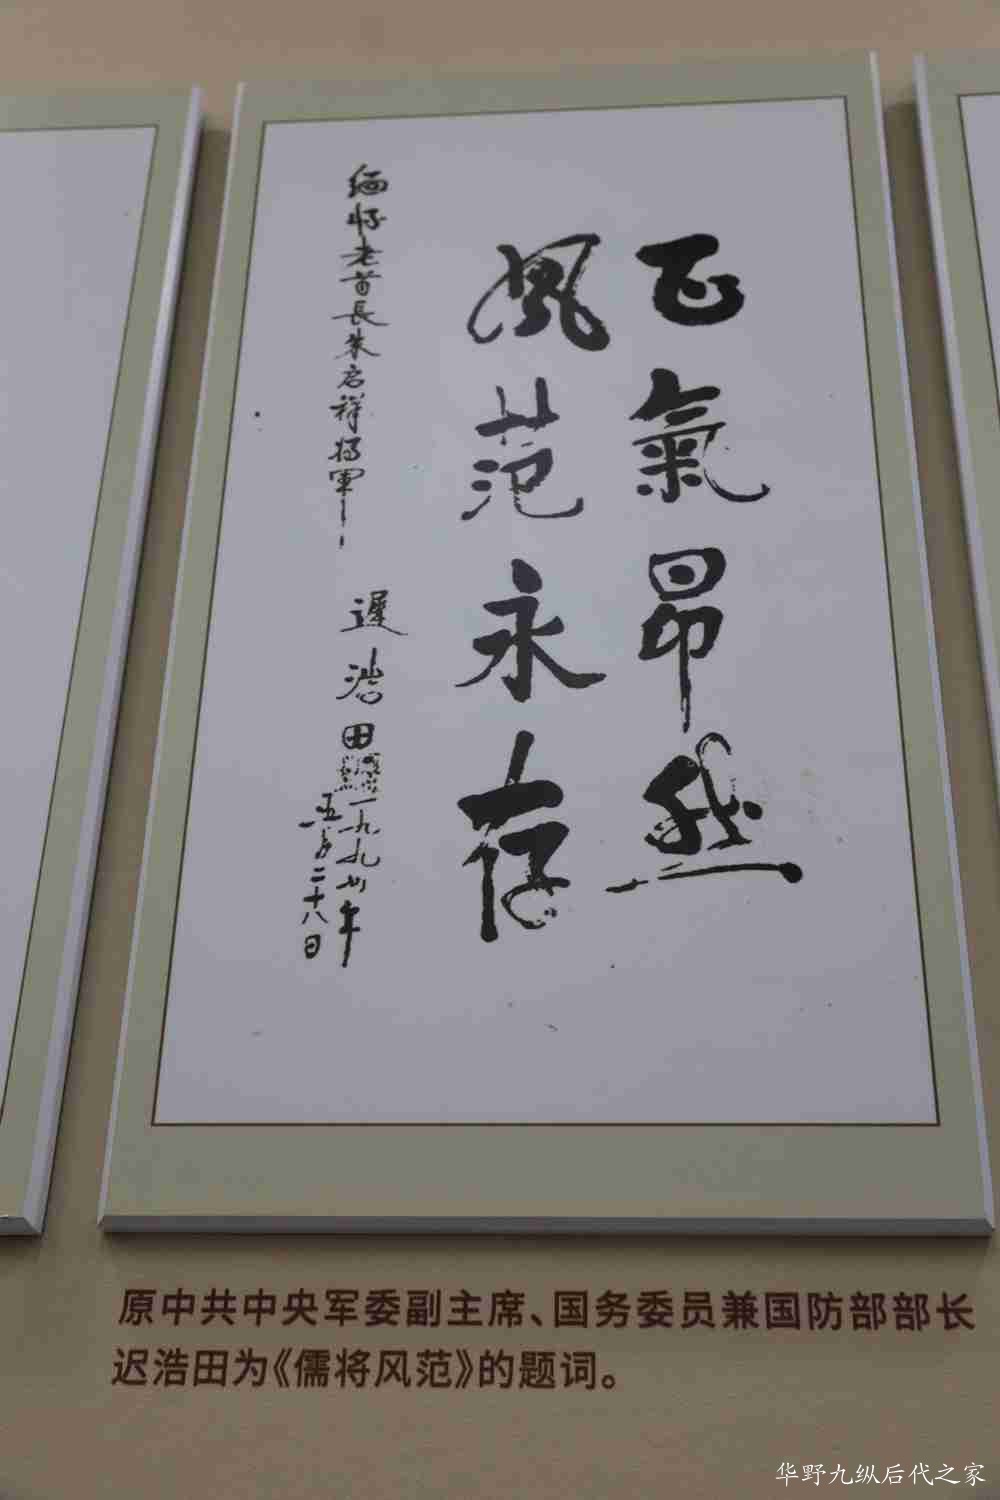 正氣昂然
風范永存
缅怀老首長朱启祥将军
遲浩田
一九九七年
五月二十八日
原中共中央军委副主席、国务委员兼国防部部长
迟浩田为《儒将风范》的题词。
华野九纵后代之家